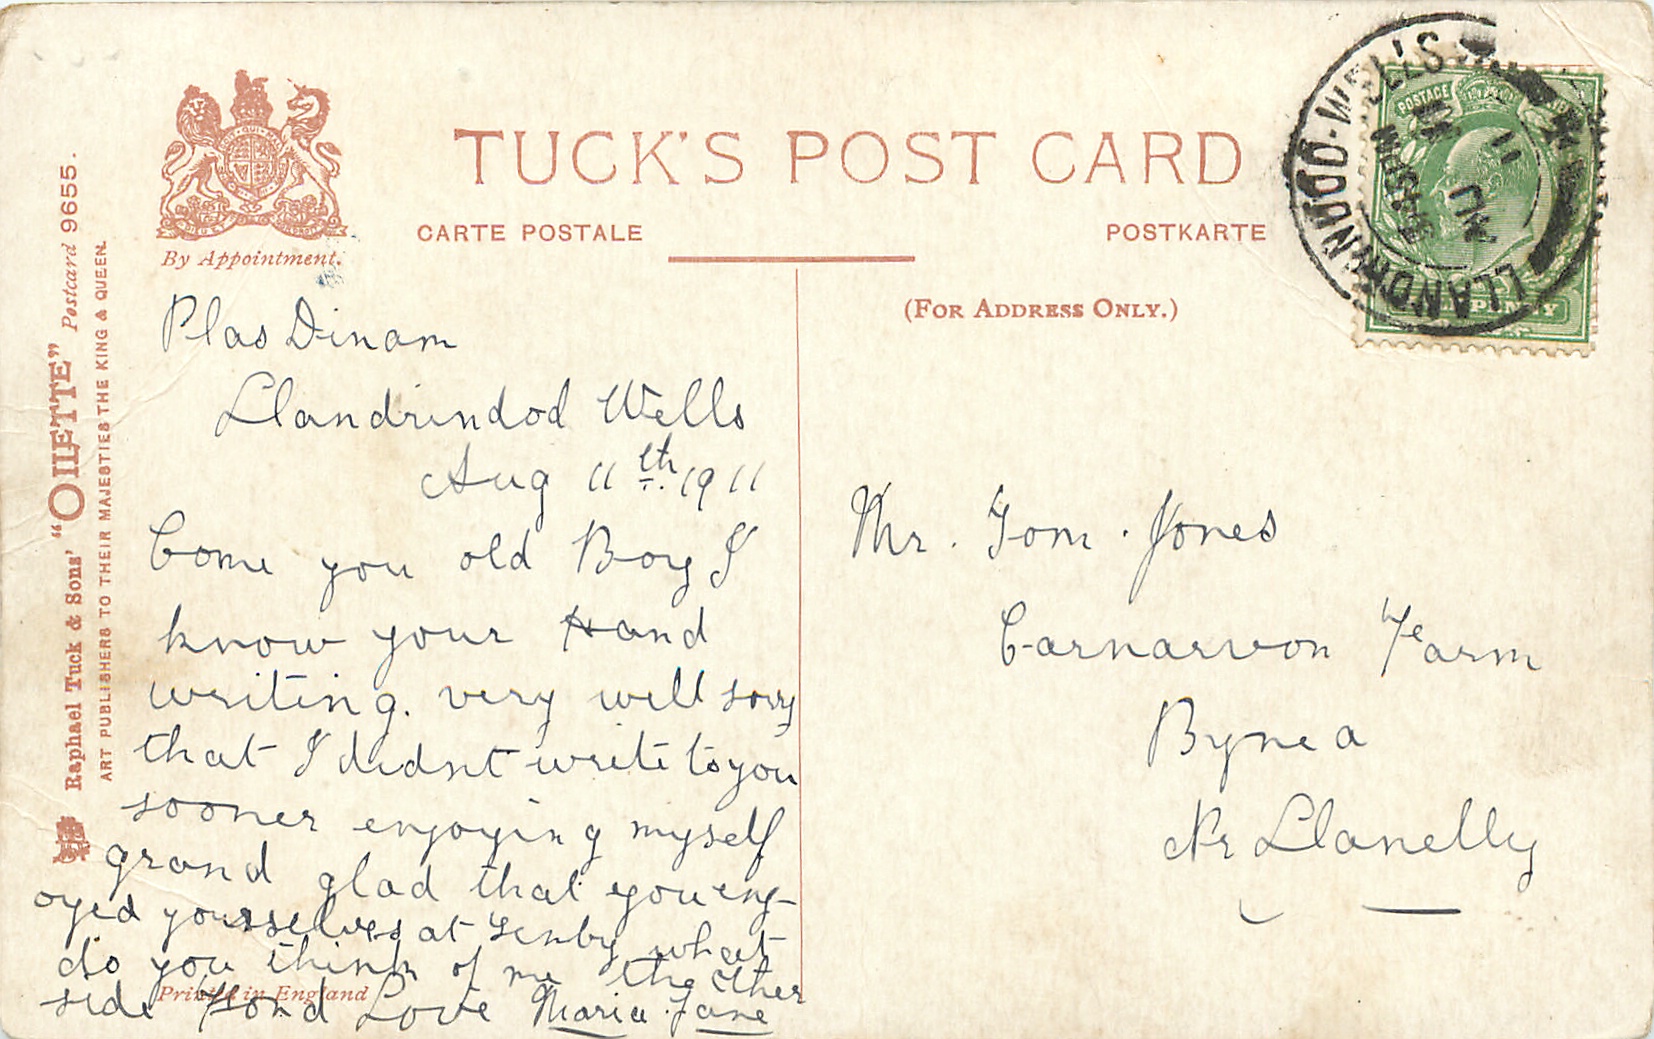 TUCK'S POST CARD
CARTE POSTALE
POSTKARTE
By Appointment.
(For Address Only.)
Raphael Tuck & Sons' "OILETTE" Postcard 9655.
ART PUBLISHERS TO THEIR MAJESTIES THE KING & QUEEN.
LLANDRINDOD-WELLS
AU 11
11
POSTAGE
Plas Dinam
Llandrindod Wells
Aug 11th. 1911
Come you old Boy I
know your Hand
writing. very well sorry
that I didnt write to you
sooner enjoying myself
grand glad that you enj-
oyed yourselves at Tenby what
do you think of me the other
side Fond Love Maria Jane
Printed in England
Mr. Tom. Jones
Carnarvon Farm
Bynea
Nr Llanelly